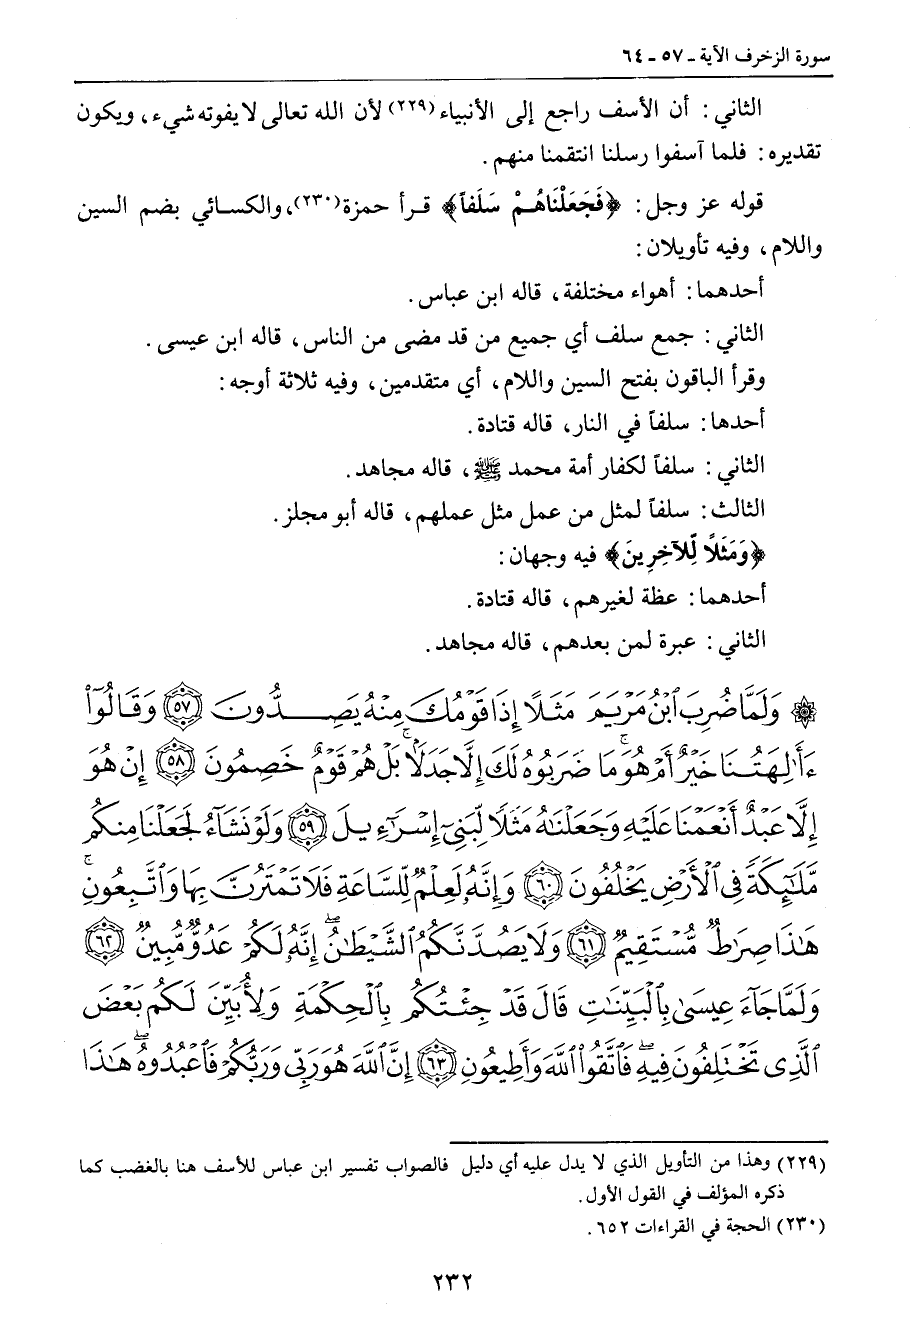 سورة الزخرف الآية ـ ٥٧ ـ ٦٤
الثاني: أن الأسف راجع إلى الأنبياء(٢٢٩) لأن الله تعالى لا يفوته شيء، ويكون
تقديره: فلما آسفوا رسلنا انتقمنا منهم.
قوله عز وجل: ﴿فَجَعَلْنَاهُمْ سَلَفاً﴾ قرأ حمزة(٢٣٠)، والكسائي بضم السين
واللام، وفيه تأويلان:
أحدهما: أهواء مختلفة، قاله ابن عباس.
الثاني: جمع سلف أي جميع من قد مضى من الناس، قاله ابن عيسى.
وقرأ الباقون بفتح السين واللام، أي متقدمين، وفيه ثلاثة أوجه:
أحدها: سلفاً في النار، قاله قتادة.
الثاني: سلفاً لكفار أمة محمد ﷺ، قاله مجاهد.
الثالث: سلفاً لمثل من عمل مثل عملهم، قاله أبو مجلز.
﴿وَمَثَلاً لِّلآخِرِينَ﴾ فيه وجهان:
أحدهما: عظة لغيرهم، قاله قتادة.
الثاني: عبرة لمن بعدهم، قاله مجاهد.
۞ وَلَمَّا ضُرِبَ ٱبْنُ مَرْيَمَ مَثَلًا إِذَا قَوْمُكَ مِنْهُ يَصِدُّونَ ٥٧ وَقَالُوٓا۟
ءَأَٰلِهَتُنَا خَيْرٌ أَمْ هُوَ ۚ مَا ضَرَبُوهُ لَكَ إِلَّا جَدَلًۢا ۚ بَلْ هُمْ قَوْمٌ خَصِمُونَ ٥٨ إِنْ هُوَ
إِلَّا عَبْدٌ أَنْعَمْنَا عَلَيْهِ وَجَعَلْنَٰهُ مَثَلًا لِّبَنِىٓ إِسْرَٰٓءِيلَ ٥٩ وَلَوْ نَشَآءُ لَجَعَلْنَا مِنكُم
مَّلَٰٓئِكَةً فِى ٱلْأَرْضِ يَخْلُفُونَ ٦٠ وَإِنَّهُۥ لَعِلْمٌ لِّلسَّاعَةِ فَلَا تَمْتَرُنَّ بِهَا وَٱتَّبِعُونِ ۚ
هَٰذَا صِرَٰطٌ مُّسْتَقِيمٌ ٦١ وَلَا يَصُدَّنَّكُمُ ٱلشَّيْطَٰنُ ۖ إِنَّهُۥ لَكُمْ عَدُوٌّ مُّبِينٌ ٦٢
وَلَمَّا جَآءَ عِيسَىٰ بِٱلْبَيِّنَٰتِ قَالَ قَدْ جِئْتُكُم بِٱلْحِكْمَةِ وَلِأُبَيِّنَ لَكُم بَعْضَ
ٱلَّذِى تَخْتَلِفُونَ فِيهِ ۖ فَٱتَّقُوا۟ ٱللَّهَ وَأَطِيعُونِ ٦٣ إِنَّ ٱللَّهَ هُوَ رَبِّى وَرَبُّكُمْ فَٱعْبُدُوهُ ۚ هَٰذَا
(٢٢٩) وهذا من التأويل الذي لا يدل عليه أي دليل فالصواب تفسير ابن عباس للأسف هنا بالغضب كما
ذكره المؤلف في القول الأول.
(٢٣٠) الحجة في القراءات ٦٥٢.
٢٣٢